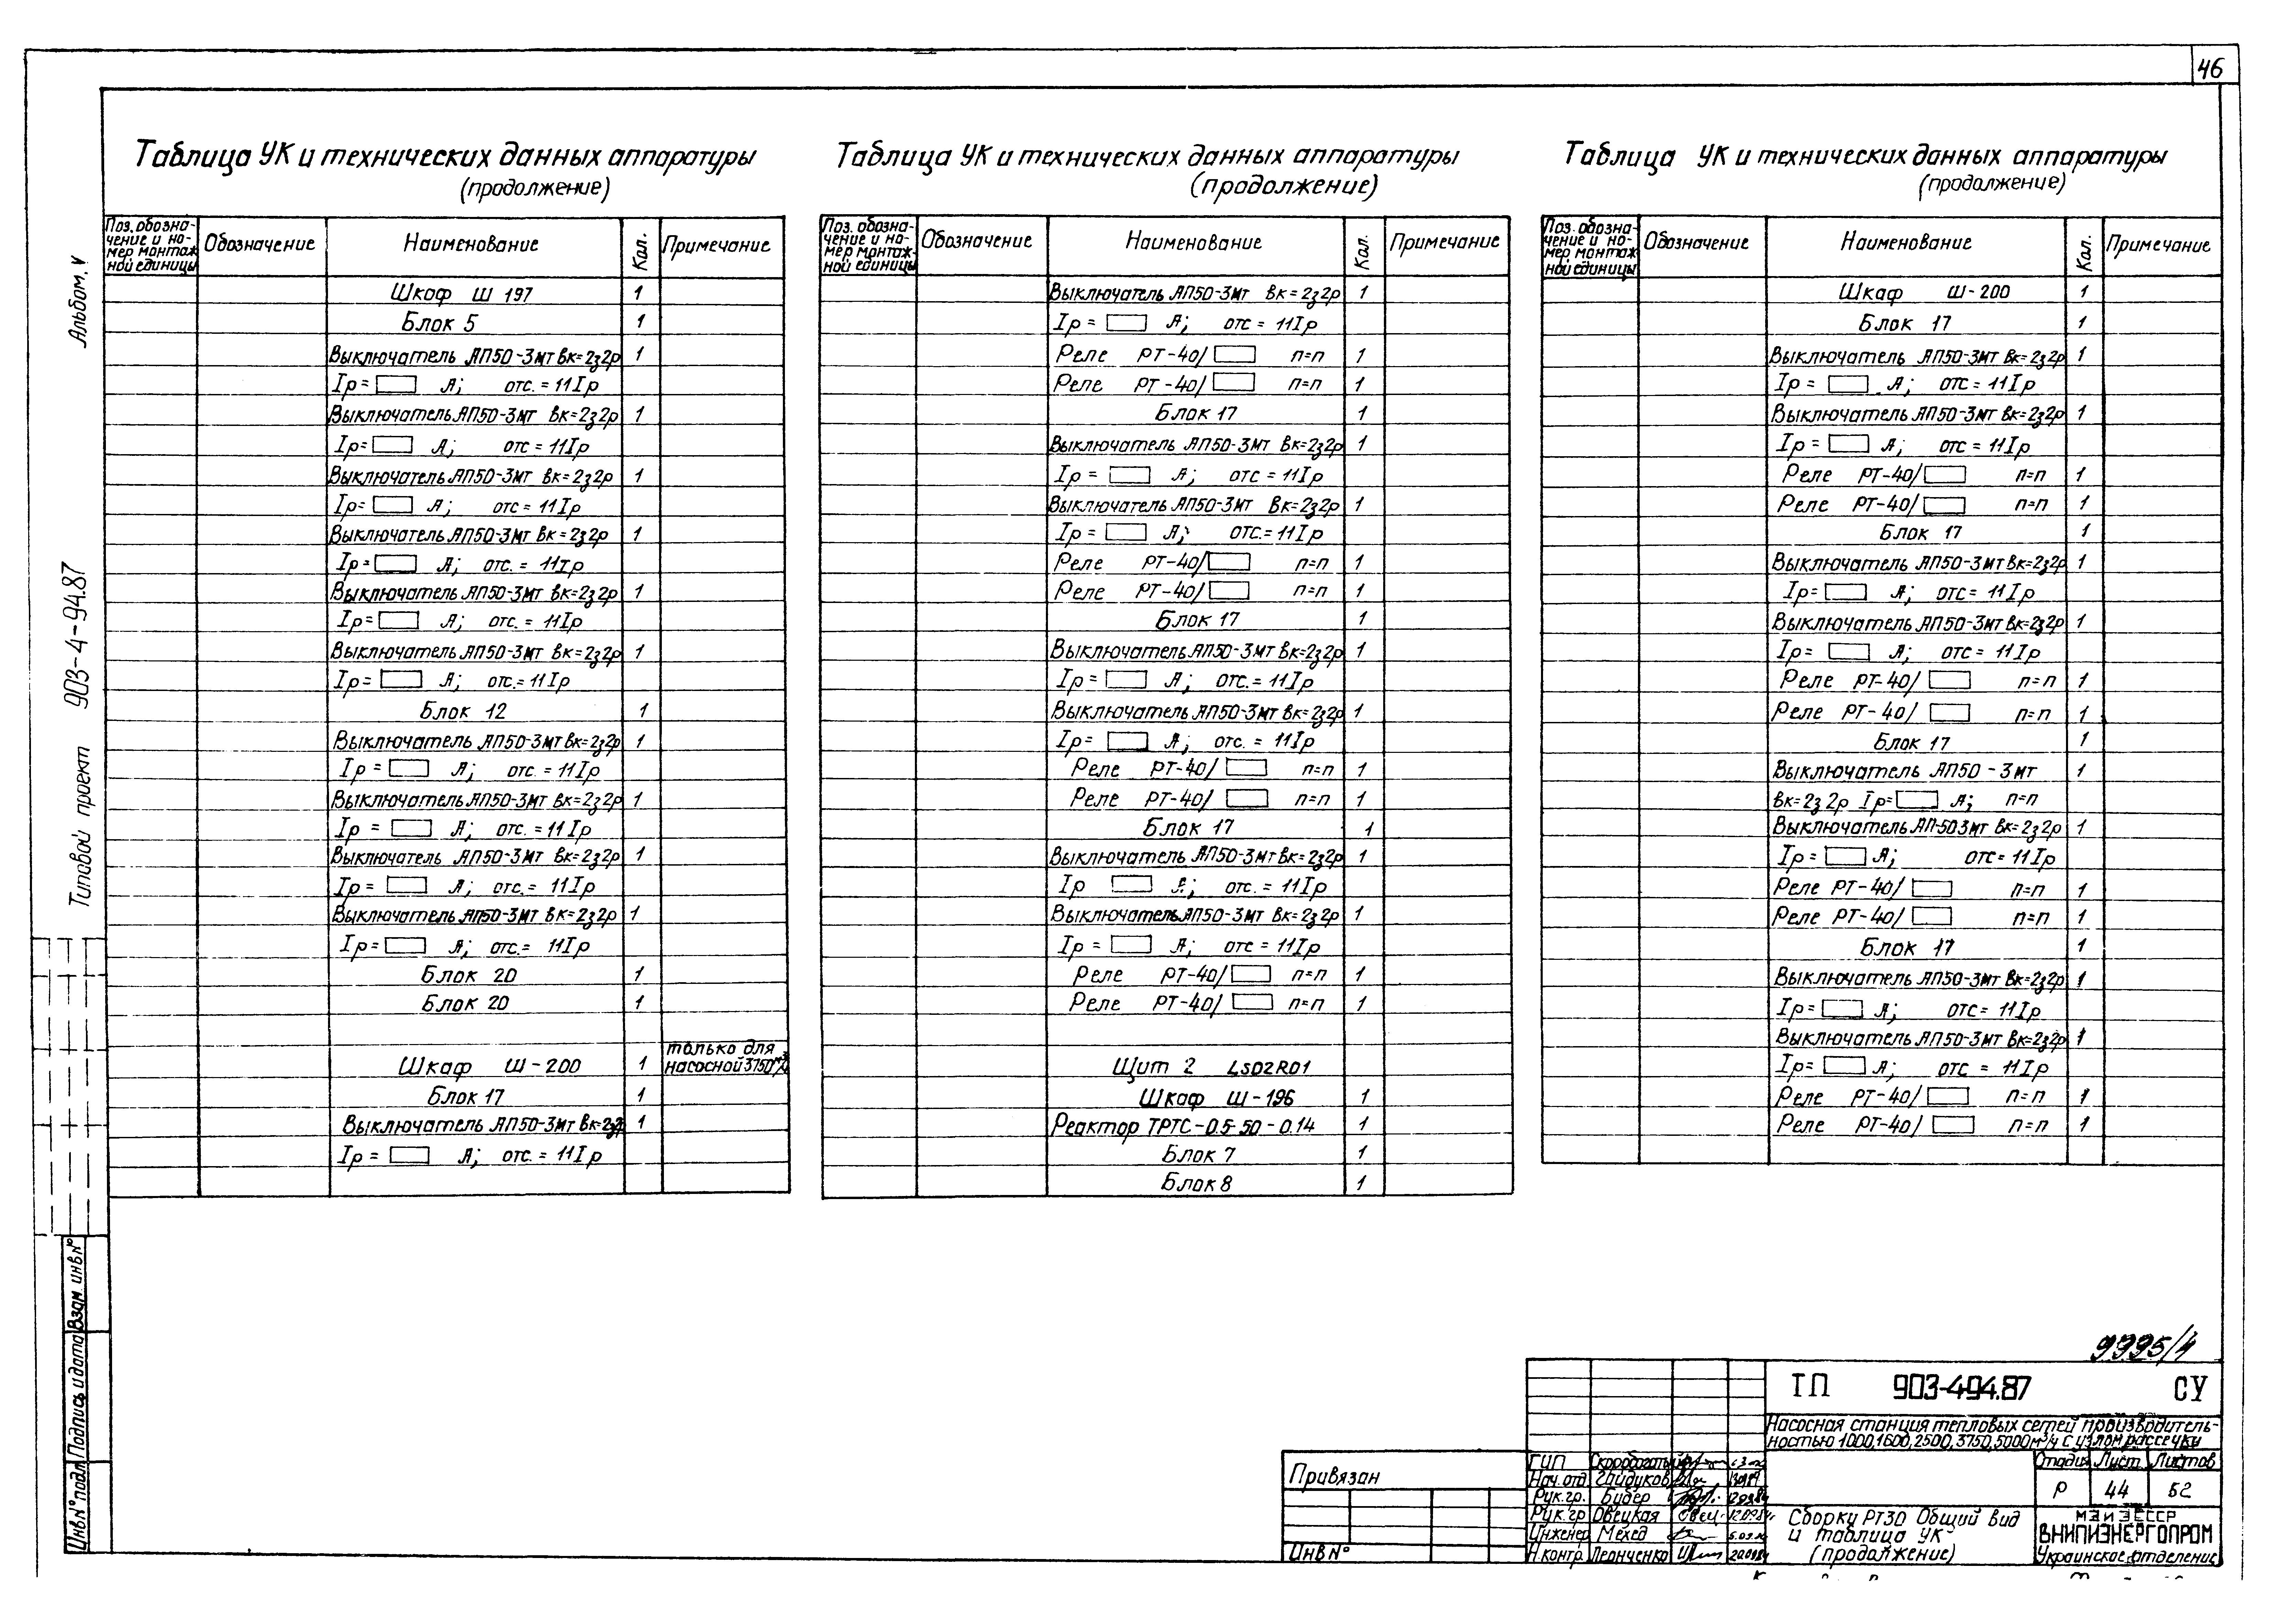 46
Альбом V
Типовой проект 903-4-94.87
Таблица УК и технических данных аппаратуры
(продолжение)
Поз. обозна-
чение и но-
мер монтаж
ной единицы
Обозначение
Наименование
Кол.
Примечание
Шкаф Ш 197 1
Блок 5 1
Выключатель АП50-3МТ Вк=2з2р 1
Iр= А; отс. = 11Iр
Выключатель АП50-3МТ Вк=2з2р 1
Iр= А; отс = 11Iр
Выключатель АП50-3МТ Вк=2з2р 1
Iр= А; отс = 11Iр
Выключатель АП50-3МТ Вк=2з2р 1
Iр= А; отс. = 11Iр
Выключатель АП50-3МТ Вк=2з2р 1
Iр= А; отс. = 11Iр
Выключатель АП50-3МТ Вк=2з2р 1
Iр= А; отс.= 11Iр
Блок 12 1
Выключатель АП50-3МТ Вк=2з2р 1
Iр = А; отс. = 11Iр
Выключатель АП50-3МТ Вк=2з2р 1
Iр = А; отс. = 11Iр
Выключатель АП50-3МТ Вк=2з2р 1
Iр= А; отс.= 11Iр
Выключатель АП50-3МТ Вк=2з2р 1
Iр= А; отс.= 11Iр
Блок 20 1
Блок 20 1
Шкаф Ш-200 1 только для
насосной 3750 м³/ч
Блок 17 1
Выключатель АП50-3МТ Вк=2з2р 1
Iр = А; отс. = 11Iр
Таблица УК и технических данных аппаратуры
(продолжение)
Поз. обозна-
чение и но-
мер монтаж-
ной единицы
Обозначение
Наименование
Кол.
Примечание
Выключатель АП50-3МТ Вк=2з2р 1
Iр = А; отс = 11Iр
Реле РТ-40/ п=п 1
Реле РТ-40/ п=п 1
Блок 17 1
Выключатель АП50-3МТ Вк=2з2р 1
Iр = А; отс = 11Iр
Выключатель АП50-3МТ Вк=2з2р 1
Iр = А; отс.= 11Iр
Реле РТ-40/ п=п 1
Реле РТ-40/ п=п 1
Блок 17 1
Выключатель АП50-3МТ Вк=2з2р 1
Iр = А; отс.= 11Iр
Выключатель АП50-3МТ Вк=2з2р 1
Iр= А; отс. = 11Iр
Реле РТ-40/ п=п 1
Реле РТ-40/ п=п 1
Блок 17 1
Выключатель АП50-3МТ Вк=2з2р 1
Iр А; отс. = 11Iр
Выключатель АП50-3МТ Вк=2з2р 1
Iр = А; отс = 11Iр
Реле РТ-40/ п=п 1
Реле РТ-40/ п=п 1
Щит 2 LS02R01
Шкаф Ш-196 1
Реактор ТРТС-0.5-50-0.14 1
Блок 7 1
Блок 8 1
Таблица УК и технических данных аппаратуры
(продолжение)
Поз. обозна-
чение и но-
мер монтаж
ной единицы
Обозначение
Наименование
Кол.
Примечание
Шкаф Ш-200 1
Блок 17 1
Выключатель АП50-3МТ Вк=2з2р 1
Iр = А; отс = 11Iр
Выключатель АП50-3МТ Вк=2з2р 1
Iр = А; отс = 11Iр
Реле РТ-40/ п=п 1
Реле РТ-40/ п=п 1
Блок 17 1
Выключатель АП50-3МТ Вк=2з2р 1
Iр= А; отс = 11Iр
Выключатель АП50-3МТ Вк=2з2р 1
Iр= А; отс = 11Iр
Реле РТ-40/ п=п 1
Реле РТ-40/ п=п 1
Блок 17 1
Выключатель АП50-3МТ 1
Вк=2з2р Iр= А; п=п
Выключатель АП-503МТ Вк=2з2р 1
Iр= А; отс= 11Iр
Реле РТ-40/ п=п 1
Реле РТ-40/ п=п 1
Блок 17 1
Выключатель АП50-3МТ Вк=2з2р 1
Iр= А; отс= 11Iр
Выключатель АП50-3МТ Вк=2з2р 1
Iр= А; отс = 11Iр
Реле РТ-40/ п=п 1
Реле РТ-40/ п=п 1
9995/4
ТП 903-494.87 СУ
Насосная станция тепловых сетей производитель-
ностью 1000,1600,2500,3750,5000м³/ч с узлом рассечки
ГИП Скоробогатый
Нач. отд. Гайдуков
Рук.гр. Бибер
Рук.гр Овецкая
Инженер Мехед
Н.контр. Леонченко
Стадия Лист Листов
Р 44 52
Сборку РТ30 Общий вид
и таблица УК
(продолжение)
МЭиЭСССР
ВНИПИЭНЕРГОПРОМ
Украинское отделение
Привязан
ИНВ №
Взам. инв №
Подпись и дата
Инв № подл